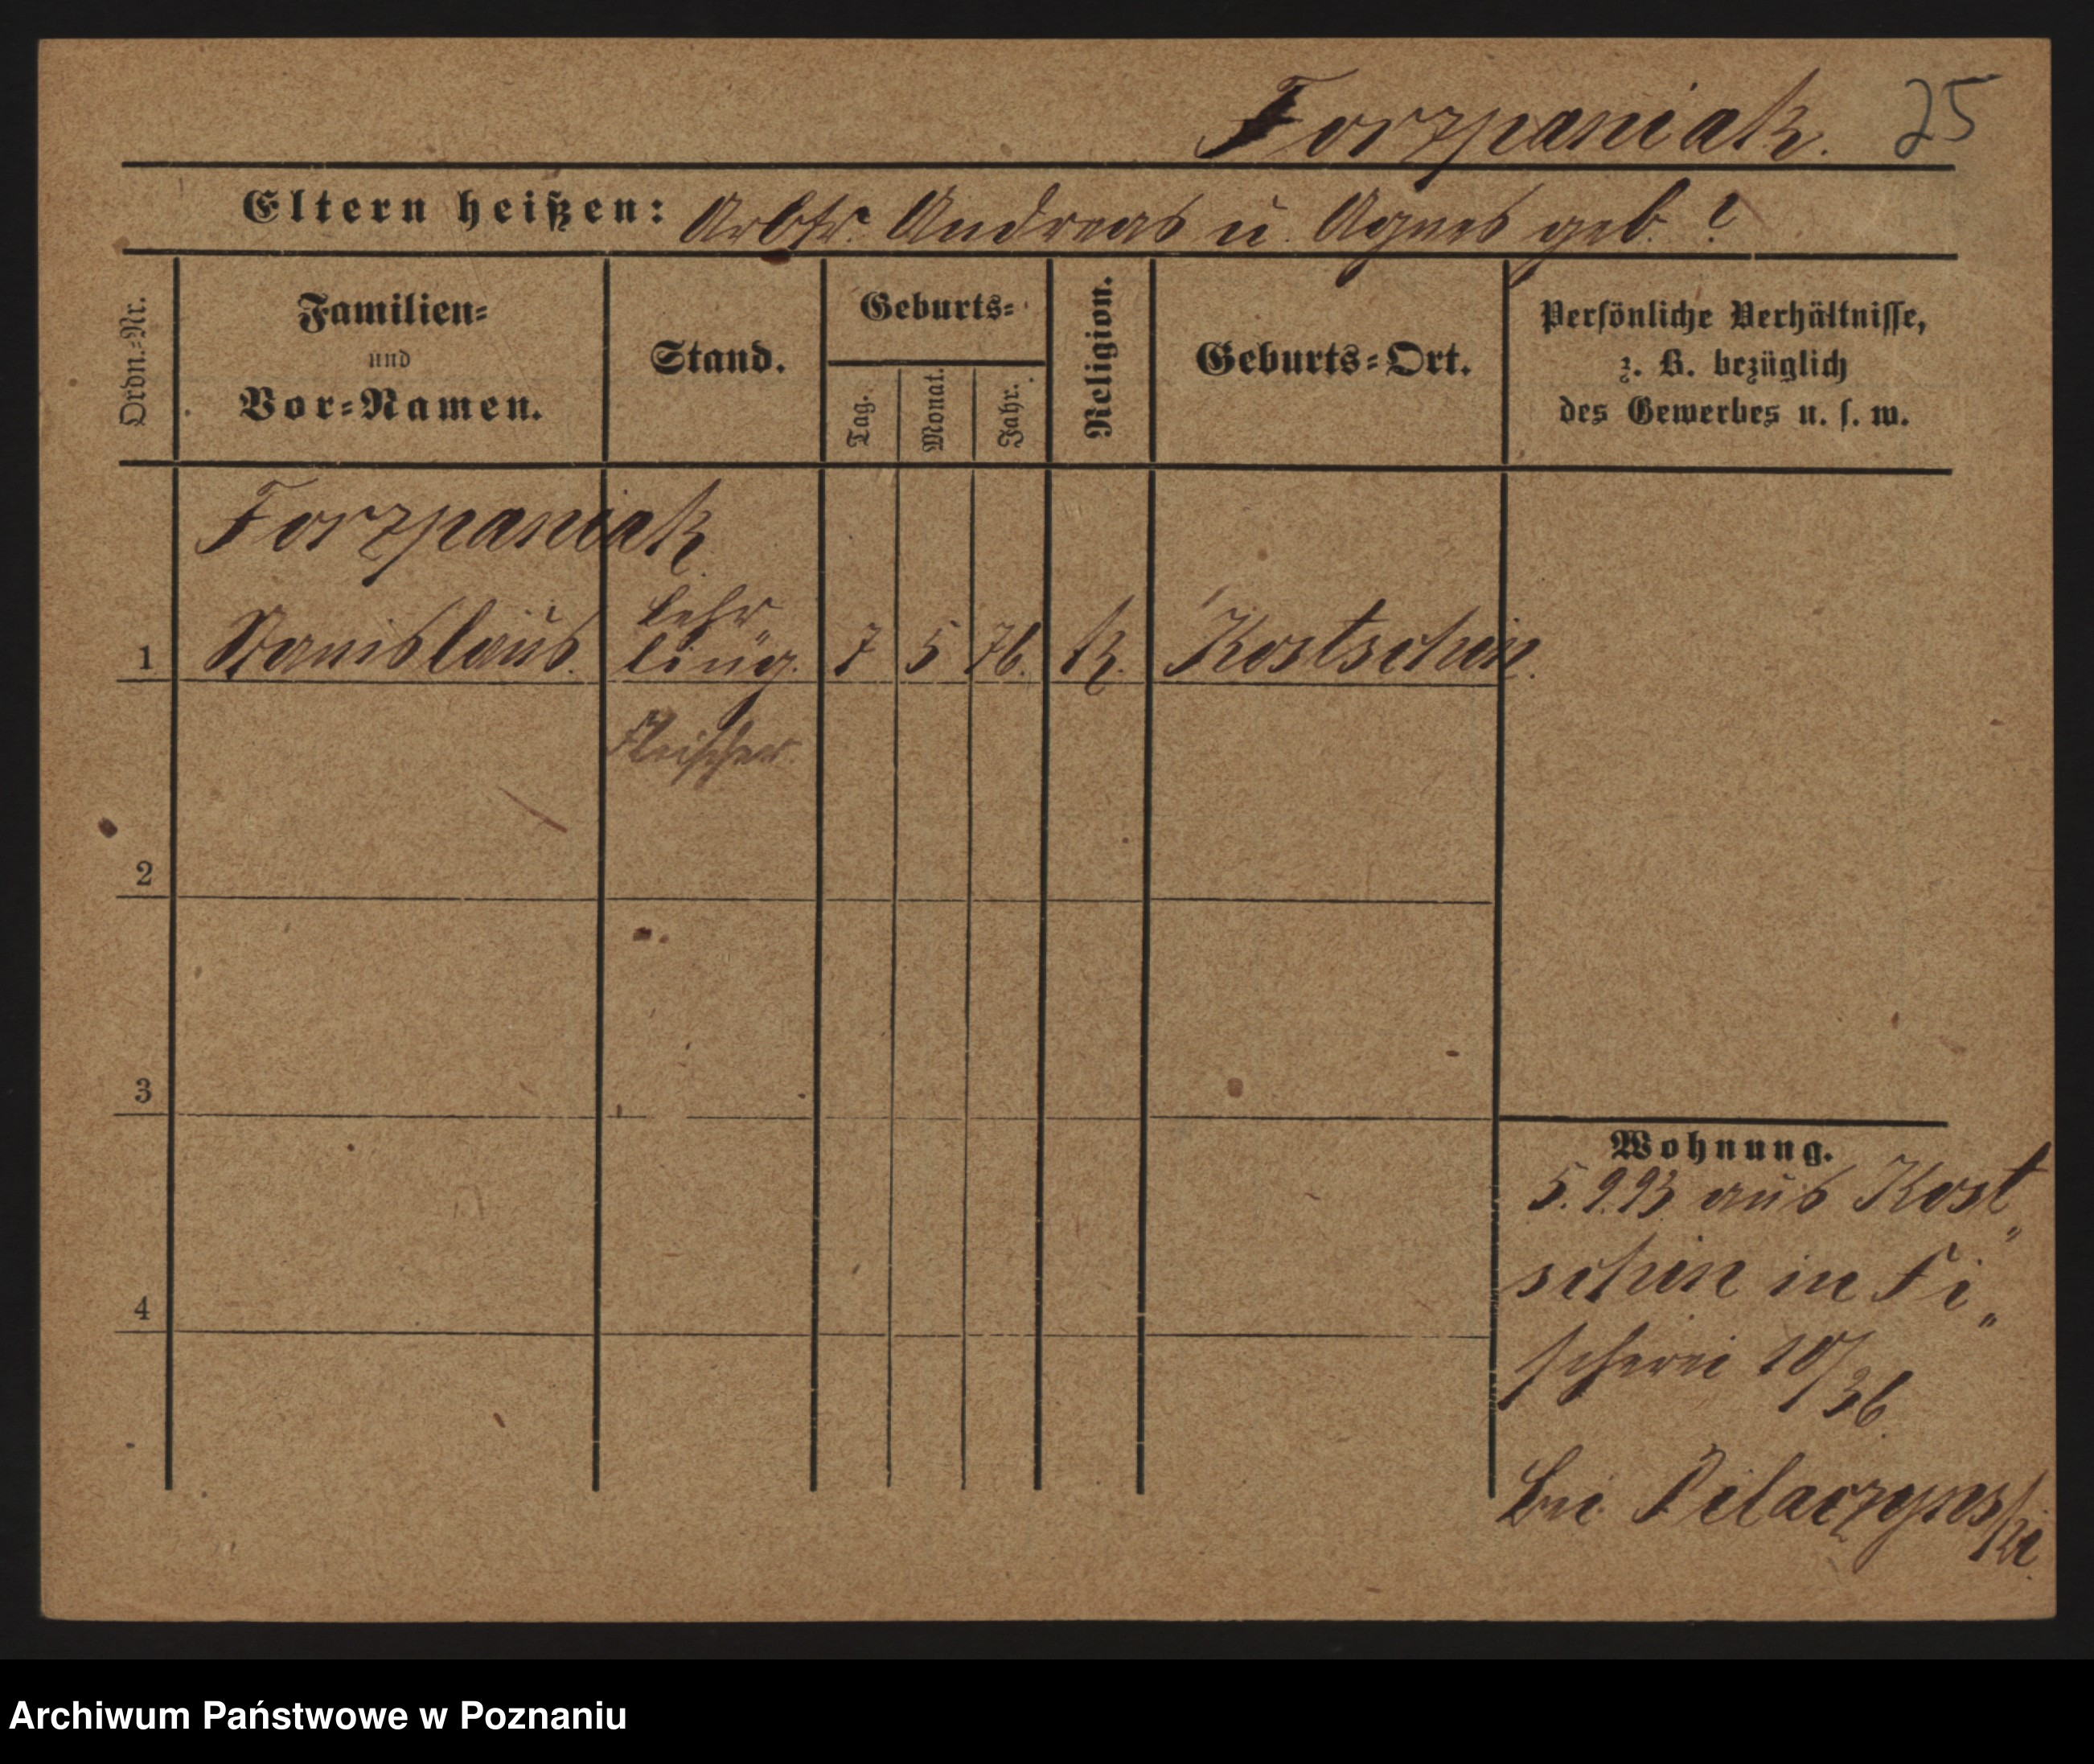 Torzpaniak. 25
Eltern heißen: Arbtr. Andreas u. Agnes geb. ?
Ordn.-Nr.
Familien-
und
Vor-Namen.
Stand.
Geburts-
Tag.
Monat.
Jahr.
Religion.
Geburts-Ort.
Persönliche Verhältnisse,
z. B. bezüglich
des Gewerbes u. s. w.
Torzpaniak
1 Stanislaus. Lehr
ling. 7 5 76. K. Kostschin.
Fleischer.
2
3
4
Wohnung.
5.9.93 aus Kost„
schin in Fi„
scherei 10/36.
bei Pilaczynski.
Archiwum Państwowe w Poznaniu